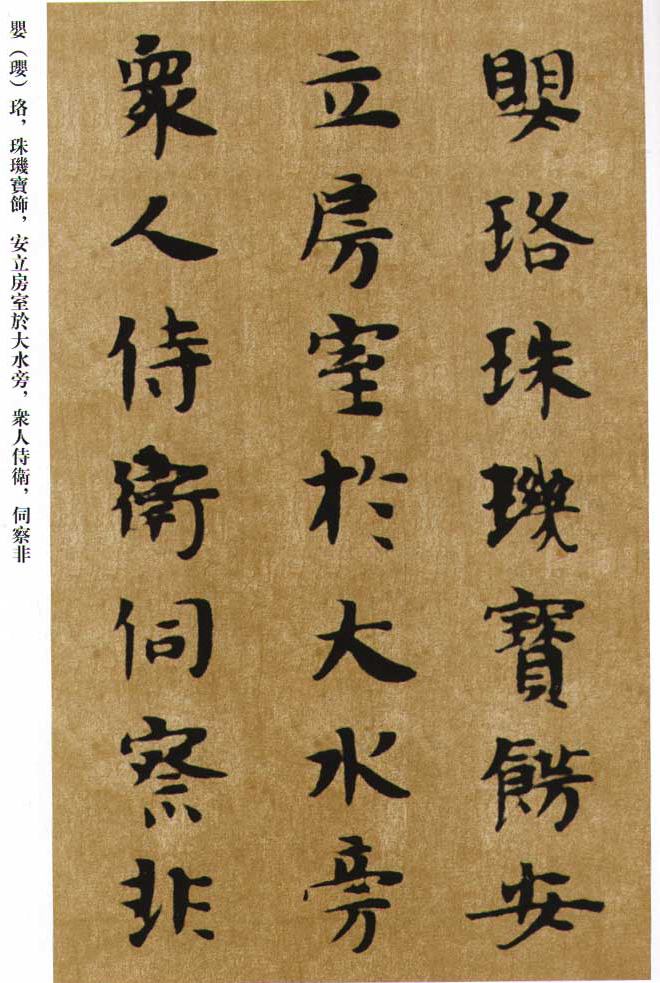 嬰珞珠璣寶飾安
立房室於大水旁
衆人侍衛伺察非
嬰（瓔）珞，珠璣寶飾，安立房室於大水旁，衆人侍衛，伺察非